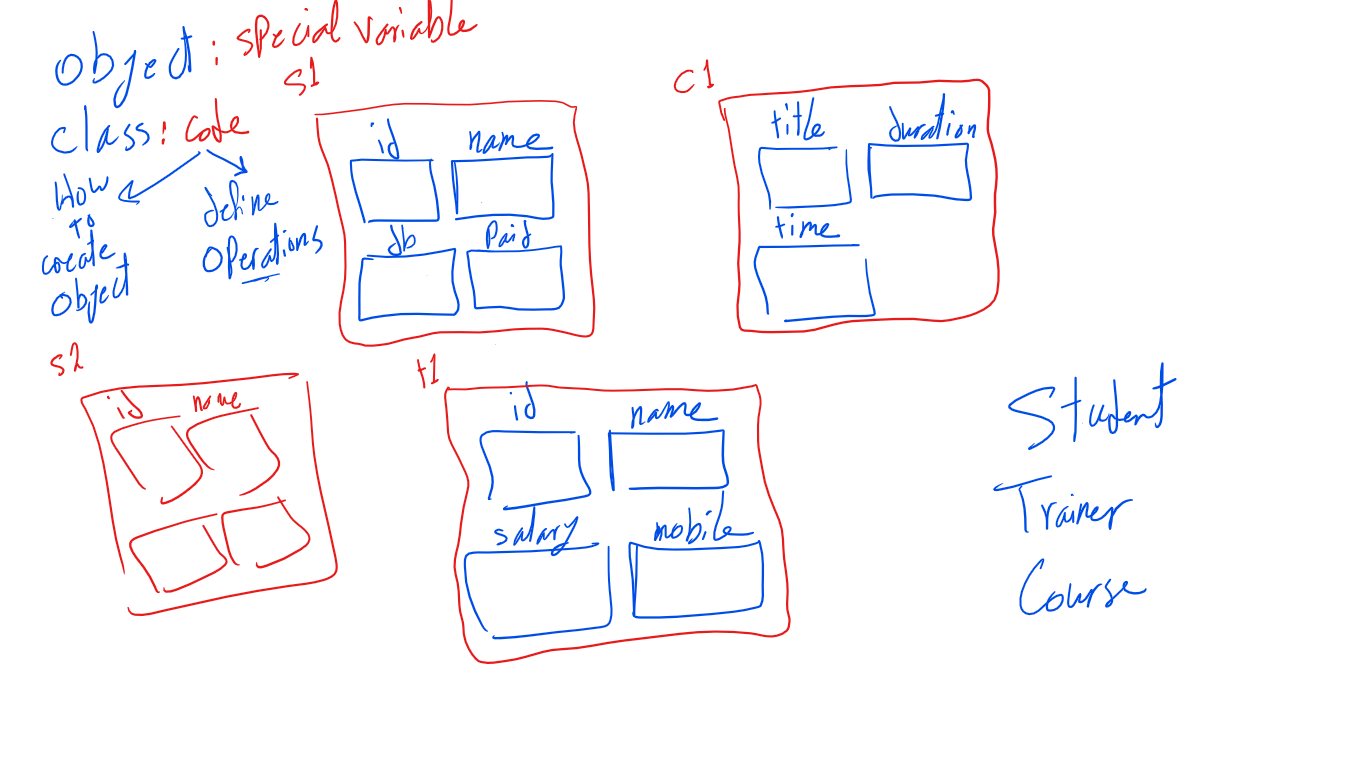 Object : special variable
class : code
How
To
create
object
define
operations
s1
id name
db Paid
c1
title duration
time
s2
id name
t1
id name
salary mobile
Student
Trainer
Course